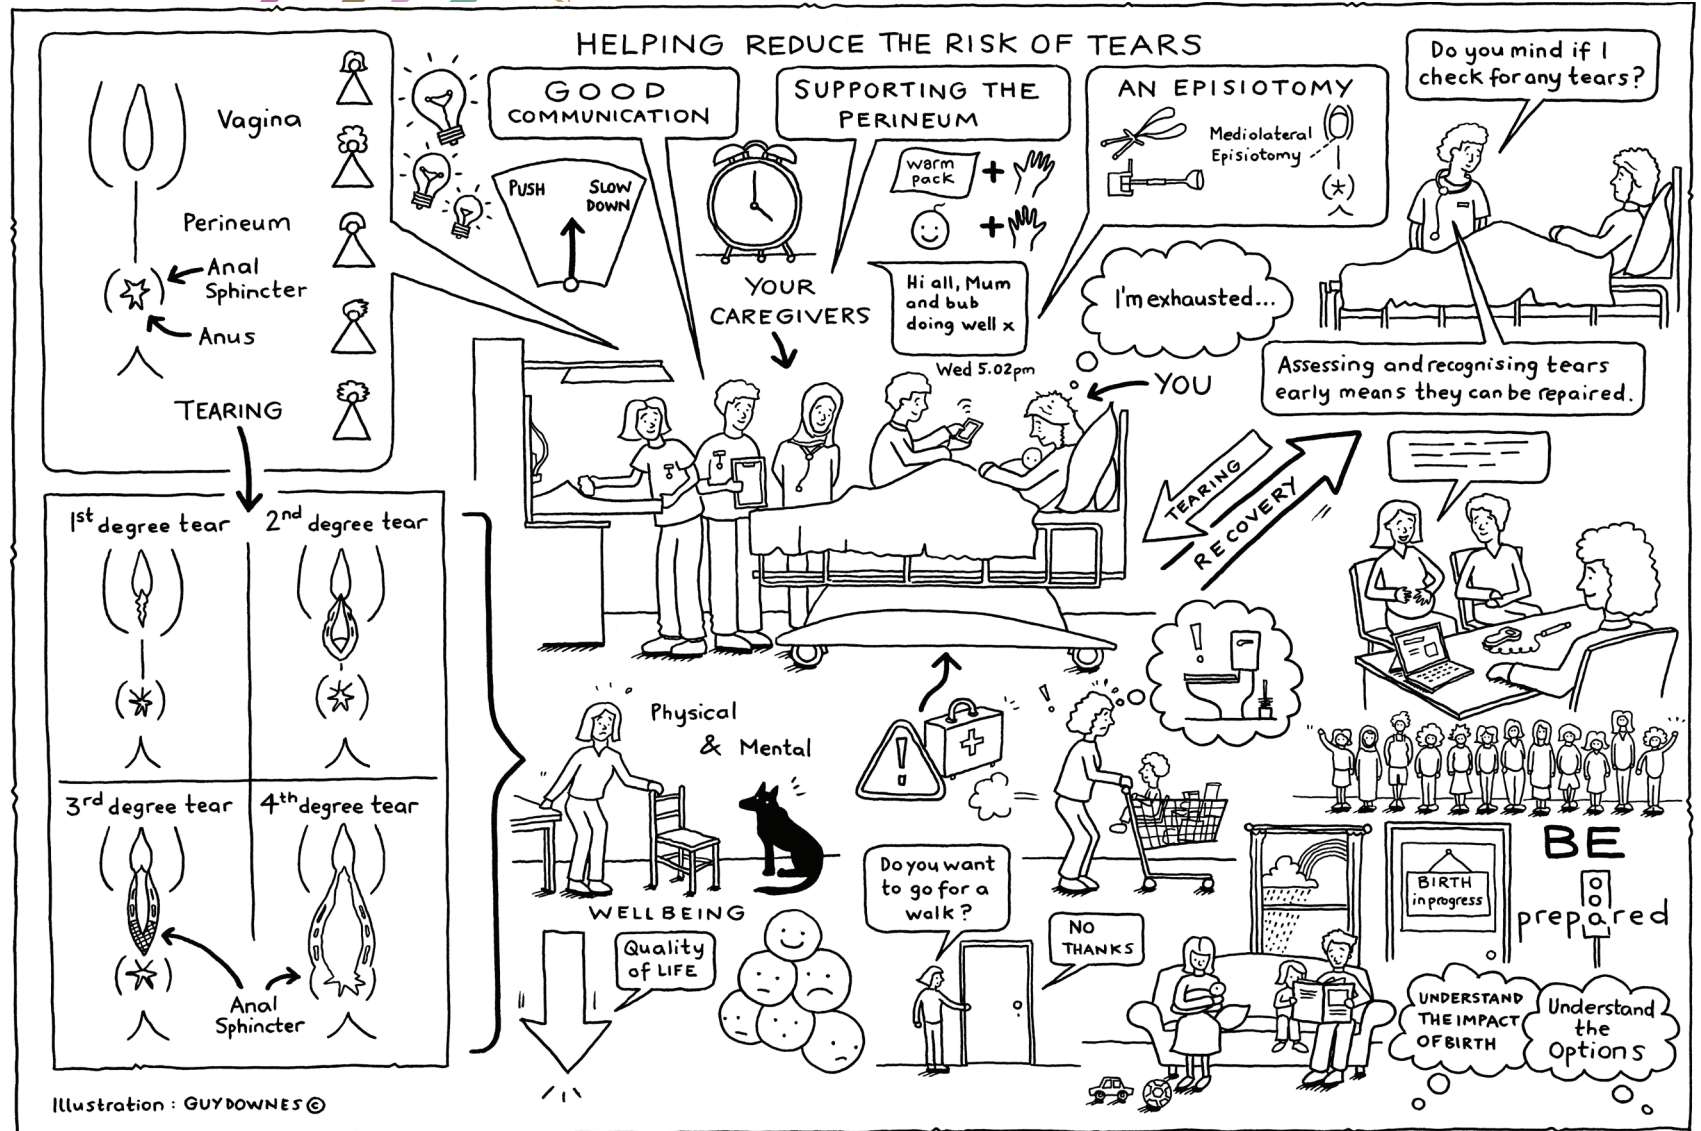 HELPING REDUCE THE RISK OF TEARS
Vagina
Perineum
Anal
Sphincter
Anus
TEARING
GOOD
COMMUNICATION
PUSH
SLOW
DOWN
SUPPORTING THE
PERINEUM
warm
pack
+
+
AN EPISIOTOMY
Mediolateral
Episiotomy
Do you mind if I
check for any tears?
YOUR
CAREGIVERS
Hi all, Mum
and bub
doing well x
Wed 5.02pm
I'm exhausted...
YOU
Assessing and recognising tears
early means they can be repaired.
TEARING
RECOVERY
1st degree tear
2nd degree tear
3rd degree tear
4th degree tear
Anal
Sphincter
Physical
& Mental
WELLBEING
Quality
of LIFE
!
!
!
Do you want
to go for a
walk?
NO
THANKS
BIRTH
in progress
BE
prepared
UNDERSTAND
THE IMPACT
OF BIRTH
Understand
the
Options
Illustration : GUY DOWNES ©